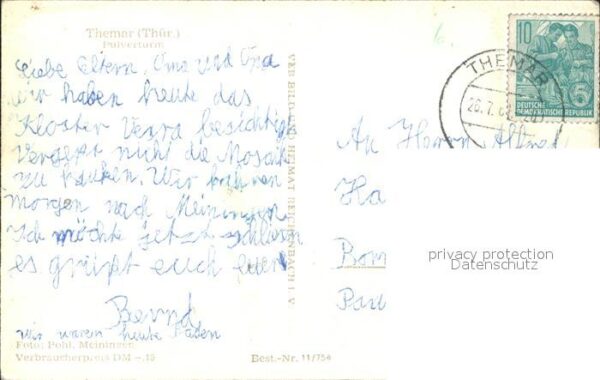 Themar (Thür.)
Pulverturm
Liebe Eltern, Oma und Opa
wir haben heute das
Kloster Vessra besichtig
Vergesst nicht die Mosaik
zu kaufen. Wir fahren
morgen nach Meiningen
Ich möchte jetzt schliesen
es grüßt euch euer
Bernd
wir waren heute Baden
Foto: Pohl, Meiningen
Verbraucherpreis DM -,15
Best.-Nr. 11/754
VEB BILD HEIMAT REICHENBACH I. V.
THEMAR
10
5
DEUTSCHE
DEMOKRATISCHE REPUBLIK
An Herrn Alfred
Ha
Bom
Pau
privacy protection
Datenschutz